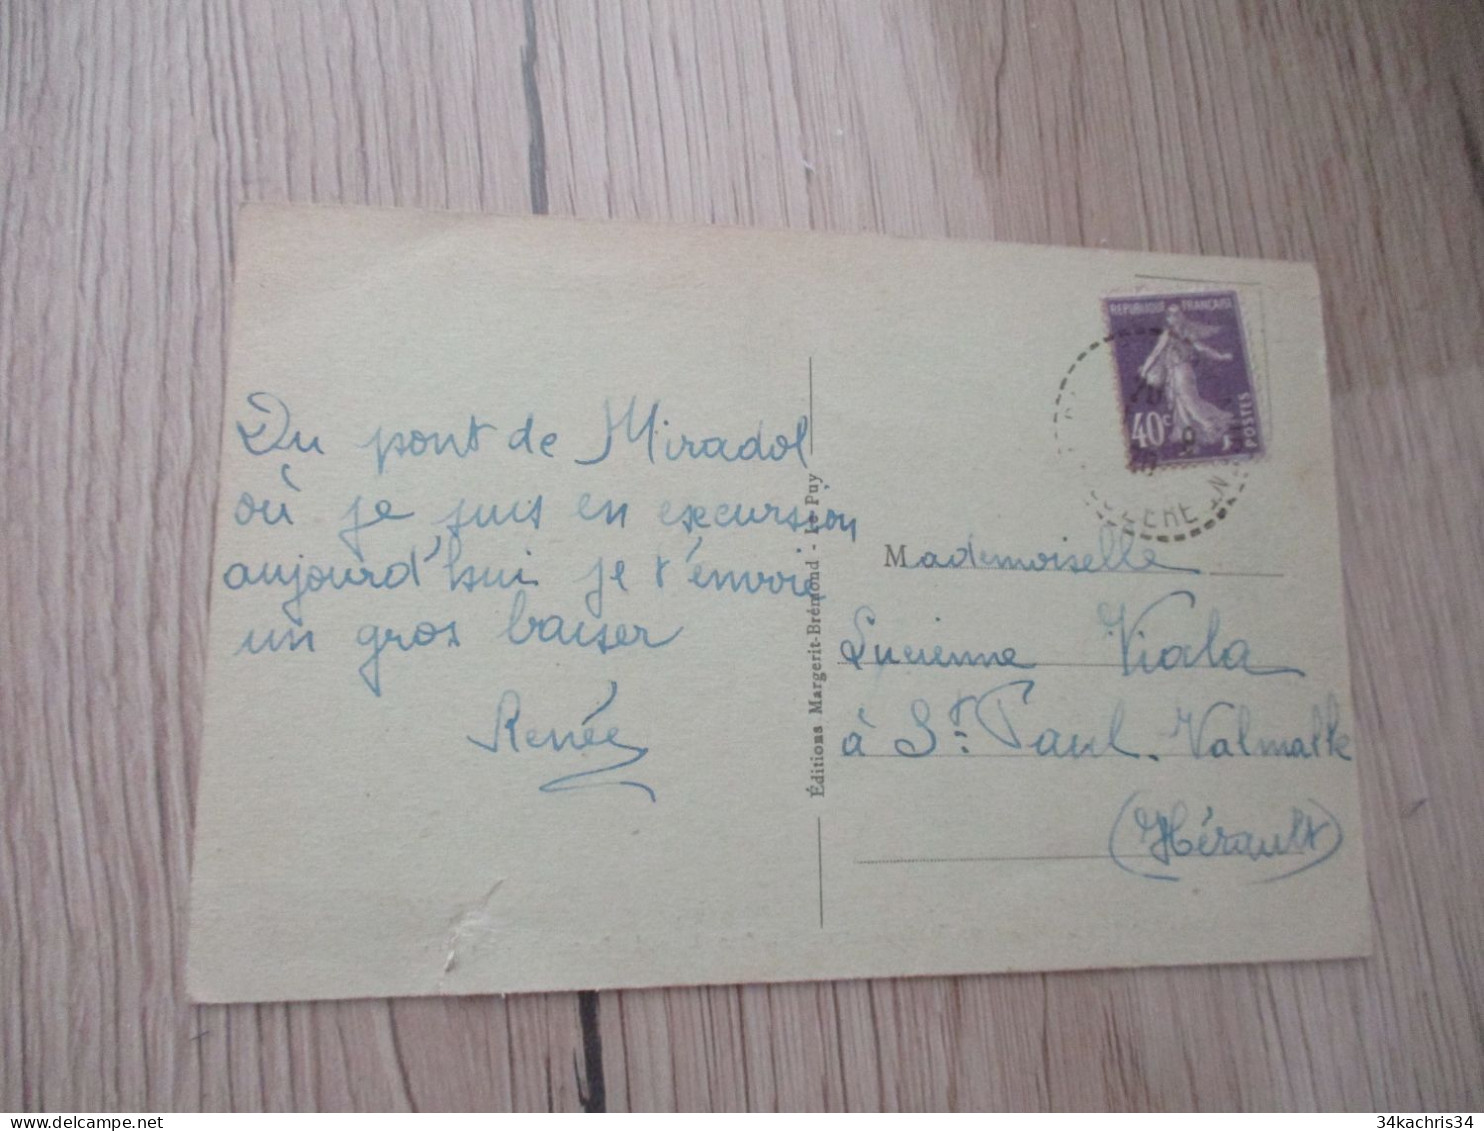 Du pont de Miradol
où je suis en excursion
aujourd'hui je t'envoie
un gros baiser
Renée
Éditions Margerit-Brémond - Le Puy
REPUBLIQUE FRANÇAISE
40c
POSTES
Mademoiselle
Lucienne Viala
à St. Paul. Valmalle
(Hérault)
34kachris34